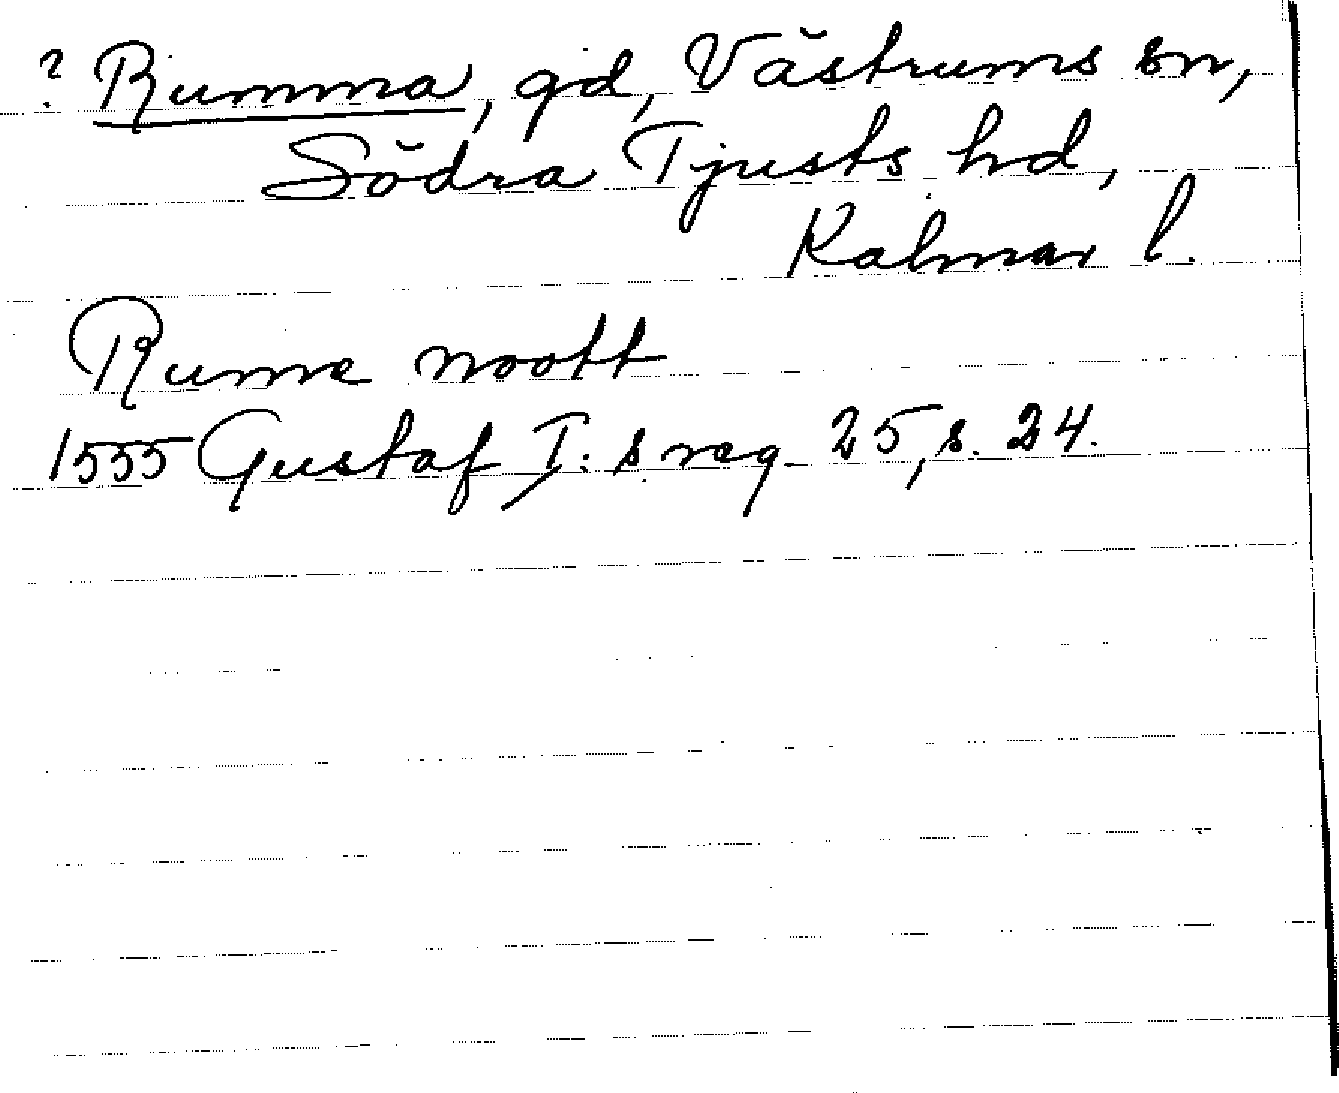 ? Rumma, gd, Västrums sn,
Södra Tjusts hd,
Kalmar l.
Rume noott
1555 Gustaf I:s reg. 25, s. 24.